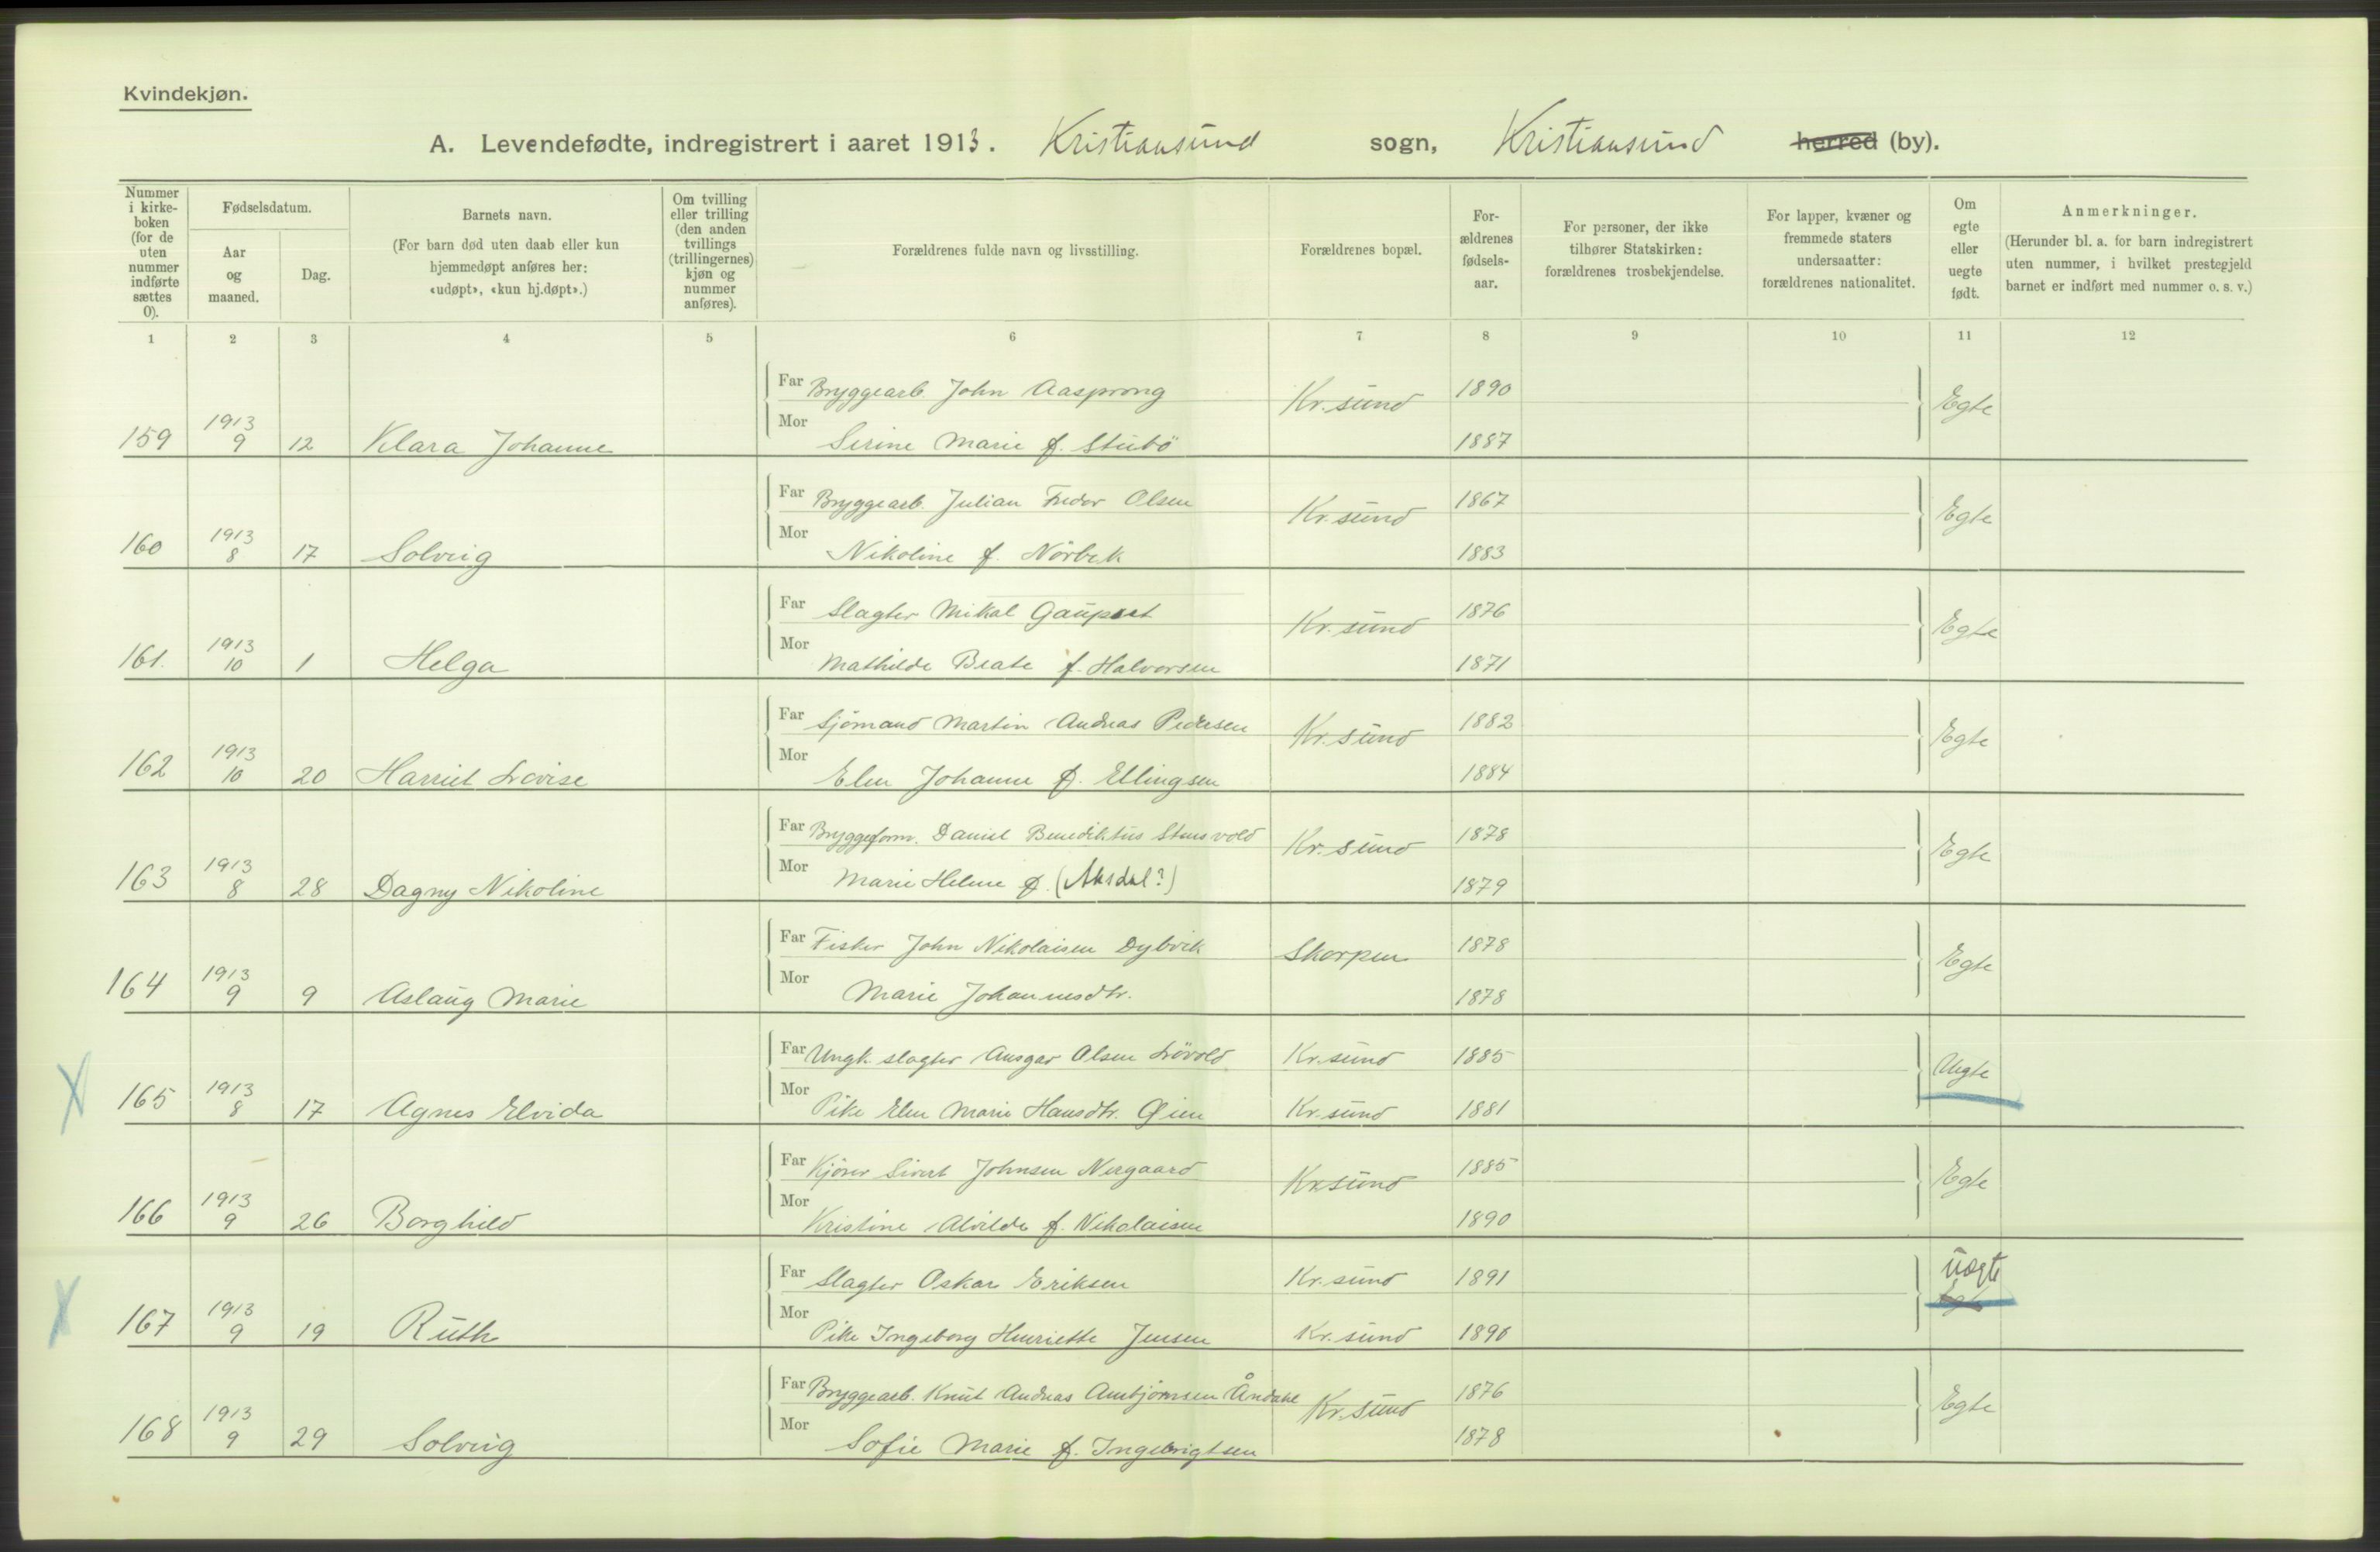 Kvindekjøn.
A. Levendefødte, indregistrert i aaret 1913. Kristiansund sogn, Kristiansund herred (by).
Nummer i kirke-boken (for de uten nummer indførte sættes 0).
Fødselsdatum.
Aar og maaned.
Dag.
Barnets navn.
(For barn død uten daab eller kun hjemmedøpt anføres her: «udøpt», «kun hj.døpt».)
Om tvilling eller trilling (den anden tvillings (trillingernes) kjøn og nummer anføres).
Forældrenes fulde navn og livsstilling.
Forældrenes bopæl.
For-ældrenes fødsels-aar.
For personer, der ikke tilhører Statskirken: forældrenes trosbekjendelse.
For lapper, kvæner og fremmede staters undersaatter: forældrenes nationalitet.
Om egte eller uegte født.
Anmerkninger.
(Herunder bl. a. for barn indregistrert uten nummer, i hvilket prestegjeld barnet er indført med nummer o. s. v.)
1 2 3 4 5 6 7 8 9 10 11 12
Far Bryggearb. John Aasprong Kr.sund 1890 Egte
159 1913 9 12 Klara Johanne
Mor Serine Marie f. Stubö 1887
Far Bryggearb. Julian Fredor Olsen Kr.sund 1867 Egte
160 1913 8 17 Solveig
Mor Nikoline f. Nörbek 1883
Far Slagter Mikal Gaupset Kr.sund 1876 Egte
161. 1913 10 1 Helga
Mor Mathilde Beate f. Halvorsen 1871
Far Sjömand Martin Andreas Pedersen Kr.sund 1882 Egte
162 1913 10 20 Harriet Lovise
Mor Elen Johanne f. Ellingsen 1884
Far Bryggeform. Daniel Benediktus Stensvold Kr.sund 1878 Egte
163 1913 8 28 Dagny Nikoline
Mor Marie Helene f. (Aksdal?) 1879
Far Fisker John Nikolaisen Dybvik Skorpen 1878 Egte
164 1913 9 9 Aslaug Marie
Mor Marie Johannesdtr. 1878
Far Ungk. slagter Ansgar Olsen Lövold Kr.sund 1885 Uegte
X 165 1913 8 17 Agnes Elvida
Mor Pike Elen Marie Hansdtr. Øien Kr.sund 1881
Far Kjörer Sivert Johnsen Nergaard Kr.sund 1885 Egte
166 1913 9 26 Borghild
Mor Kristine Alvilde f. Nikolaisen 1890
Far Slagter Oskar Eriksen Kr.sund 1891 uegte Egte
X 167 1913 9 19 Ruth
Mor Pike Ingeborg Henriette Jensen Kr.sund 1890
Far Bryggearb. Knut Andreas Arnbjörnsen Åndahl Kr.sund 1876 Egte
168 1913 9 29 Solveig
Mor Sofie Marie f. Ingebrigtsen 1878